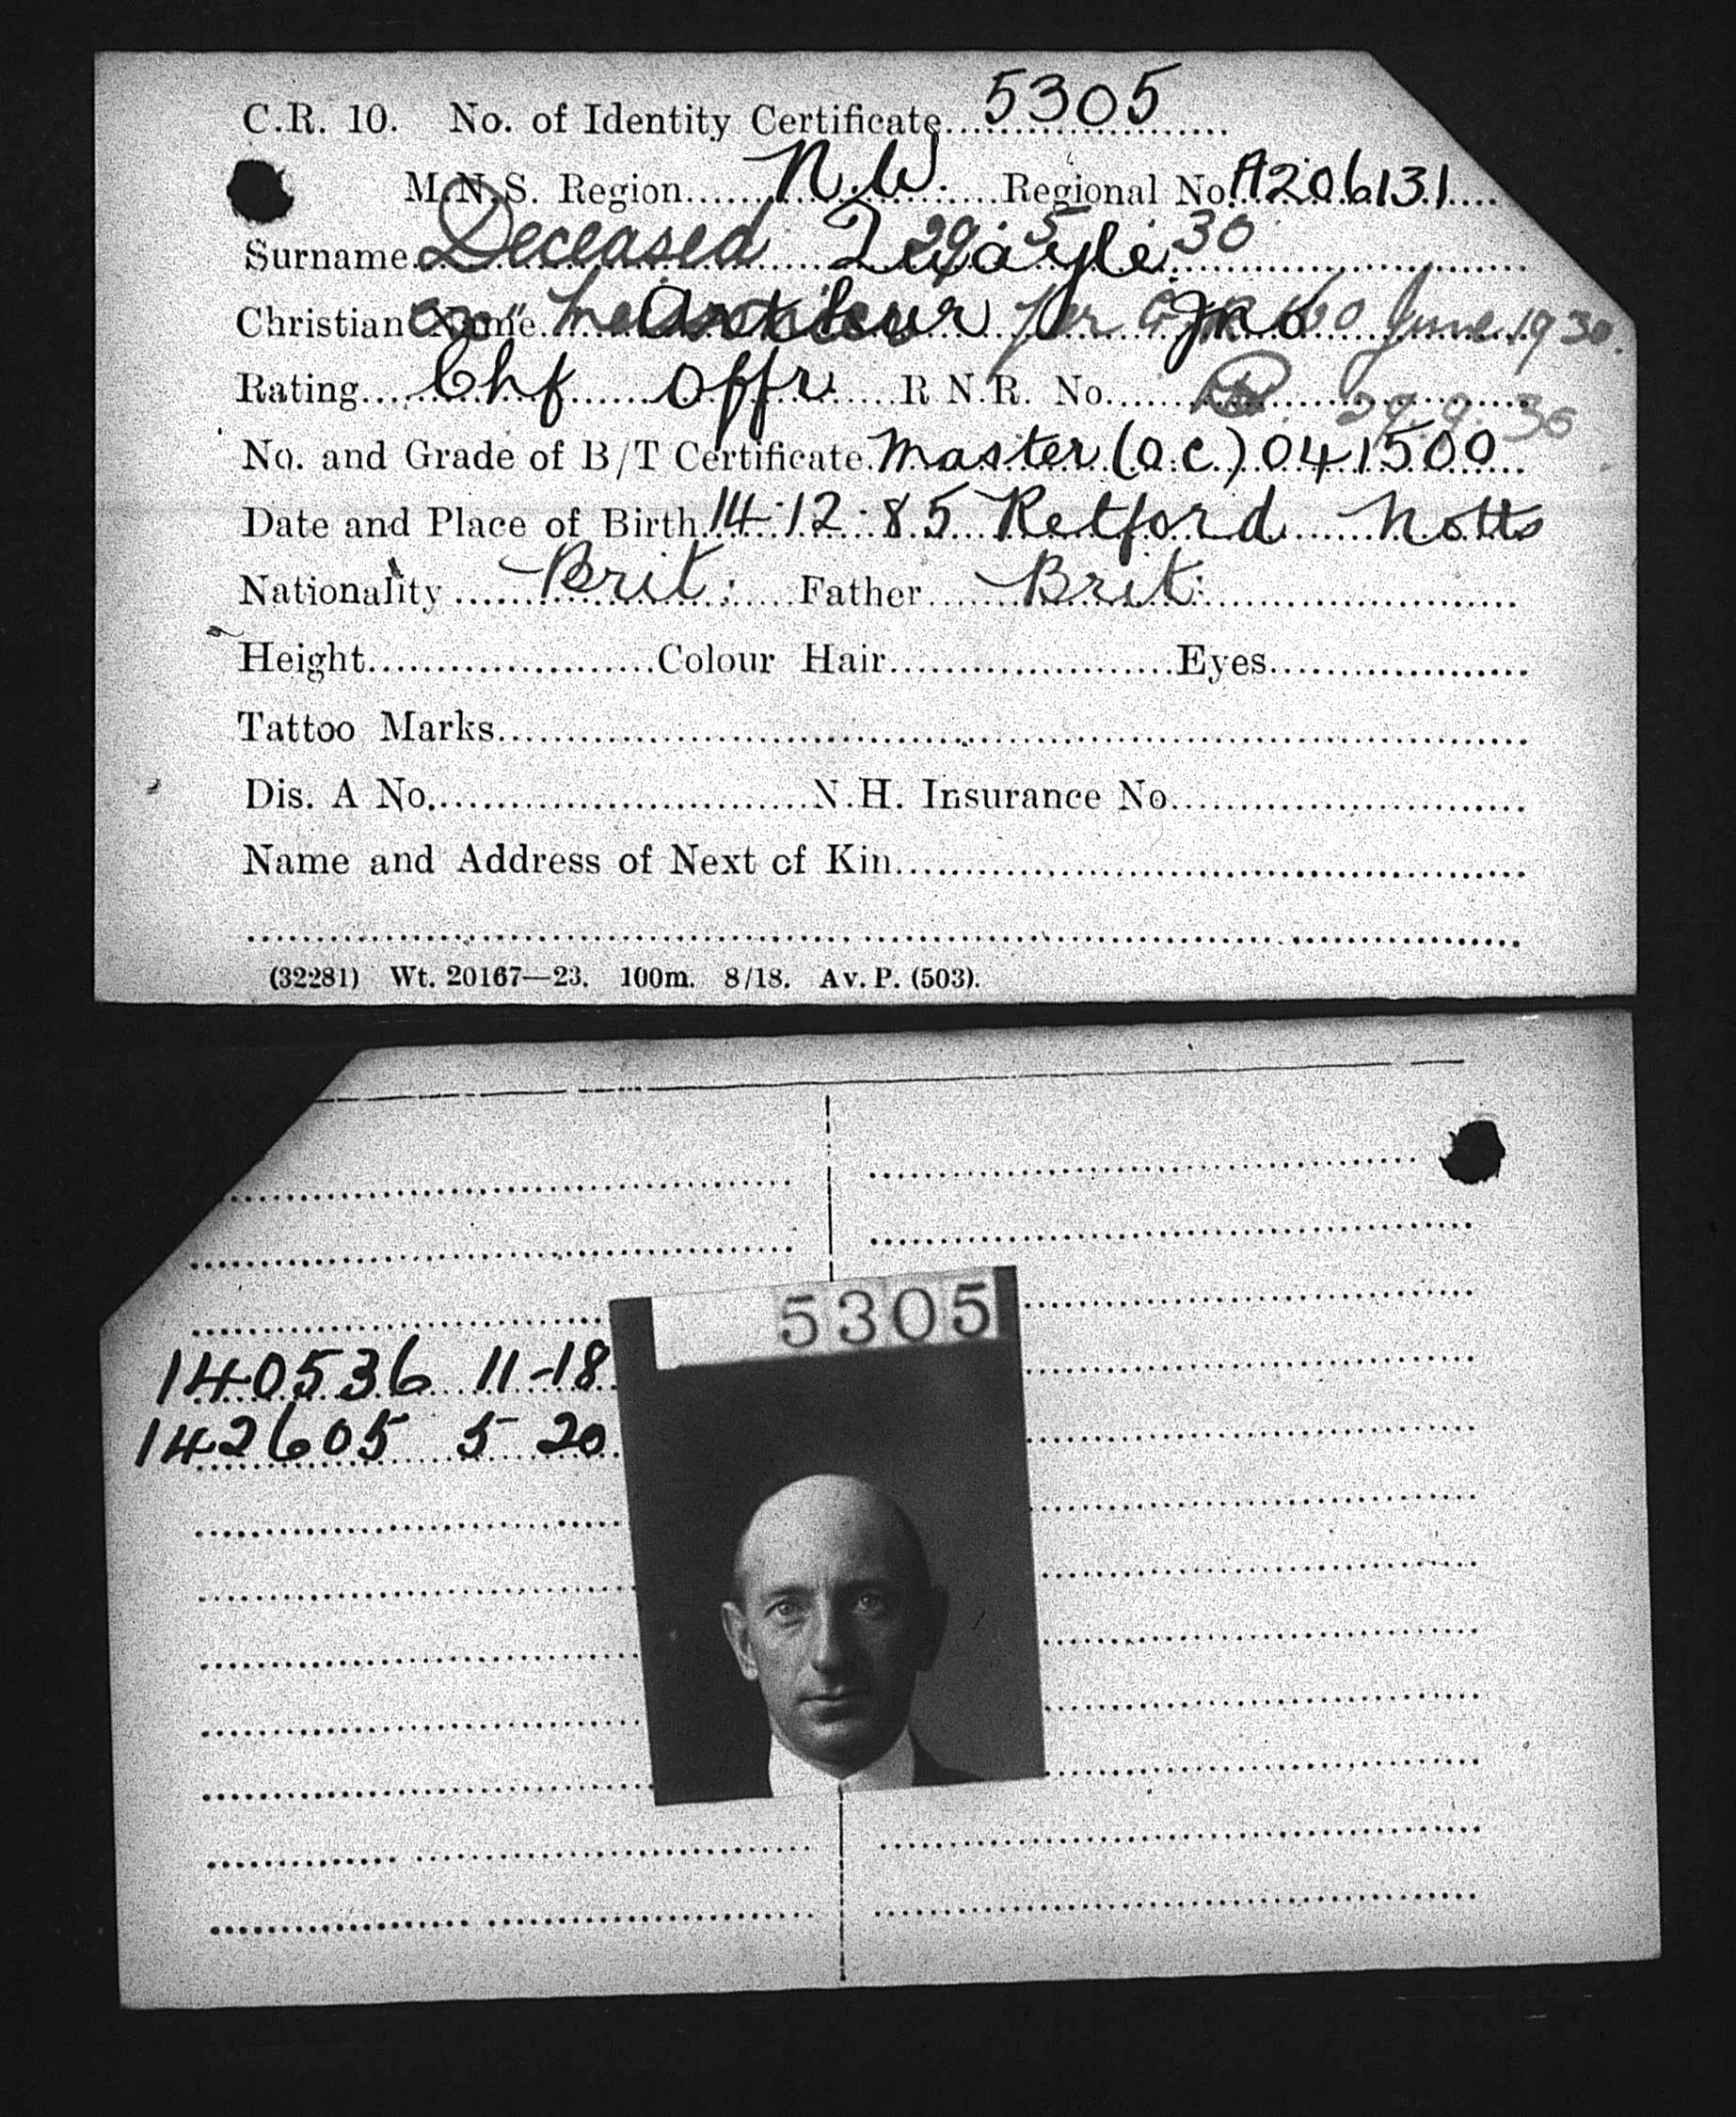 C.R. 10. No. of Identity Certificate 5305
M.N.S. Region N.W. Regional No. A206131
Surname Quayle
Deceased 29 5 30
Christian Name Arthur Jno
on per 60 June 1930
Rating Chf Offr R N.R. No.
29.9.30
No. and Grade of B/T Certificate Master (O.C.) 041500
Date and Place of Birth 14·12·85 Retford Notts
Nationality Brit: Father Brit:
Height Colour Hair Eyes
Tattoo Marks
Dis. A No. N.H. Insurance No.
Name and Address of Next of Kin
(32281) Wt. 20167—23. 100m. 8/18. Av. P. (503).
5305
140536 11-18
142605 5 20